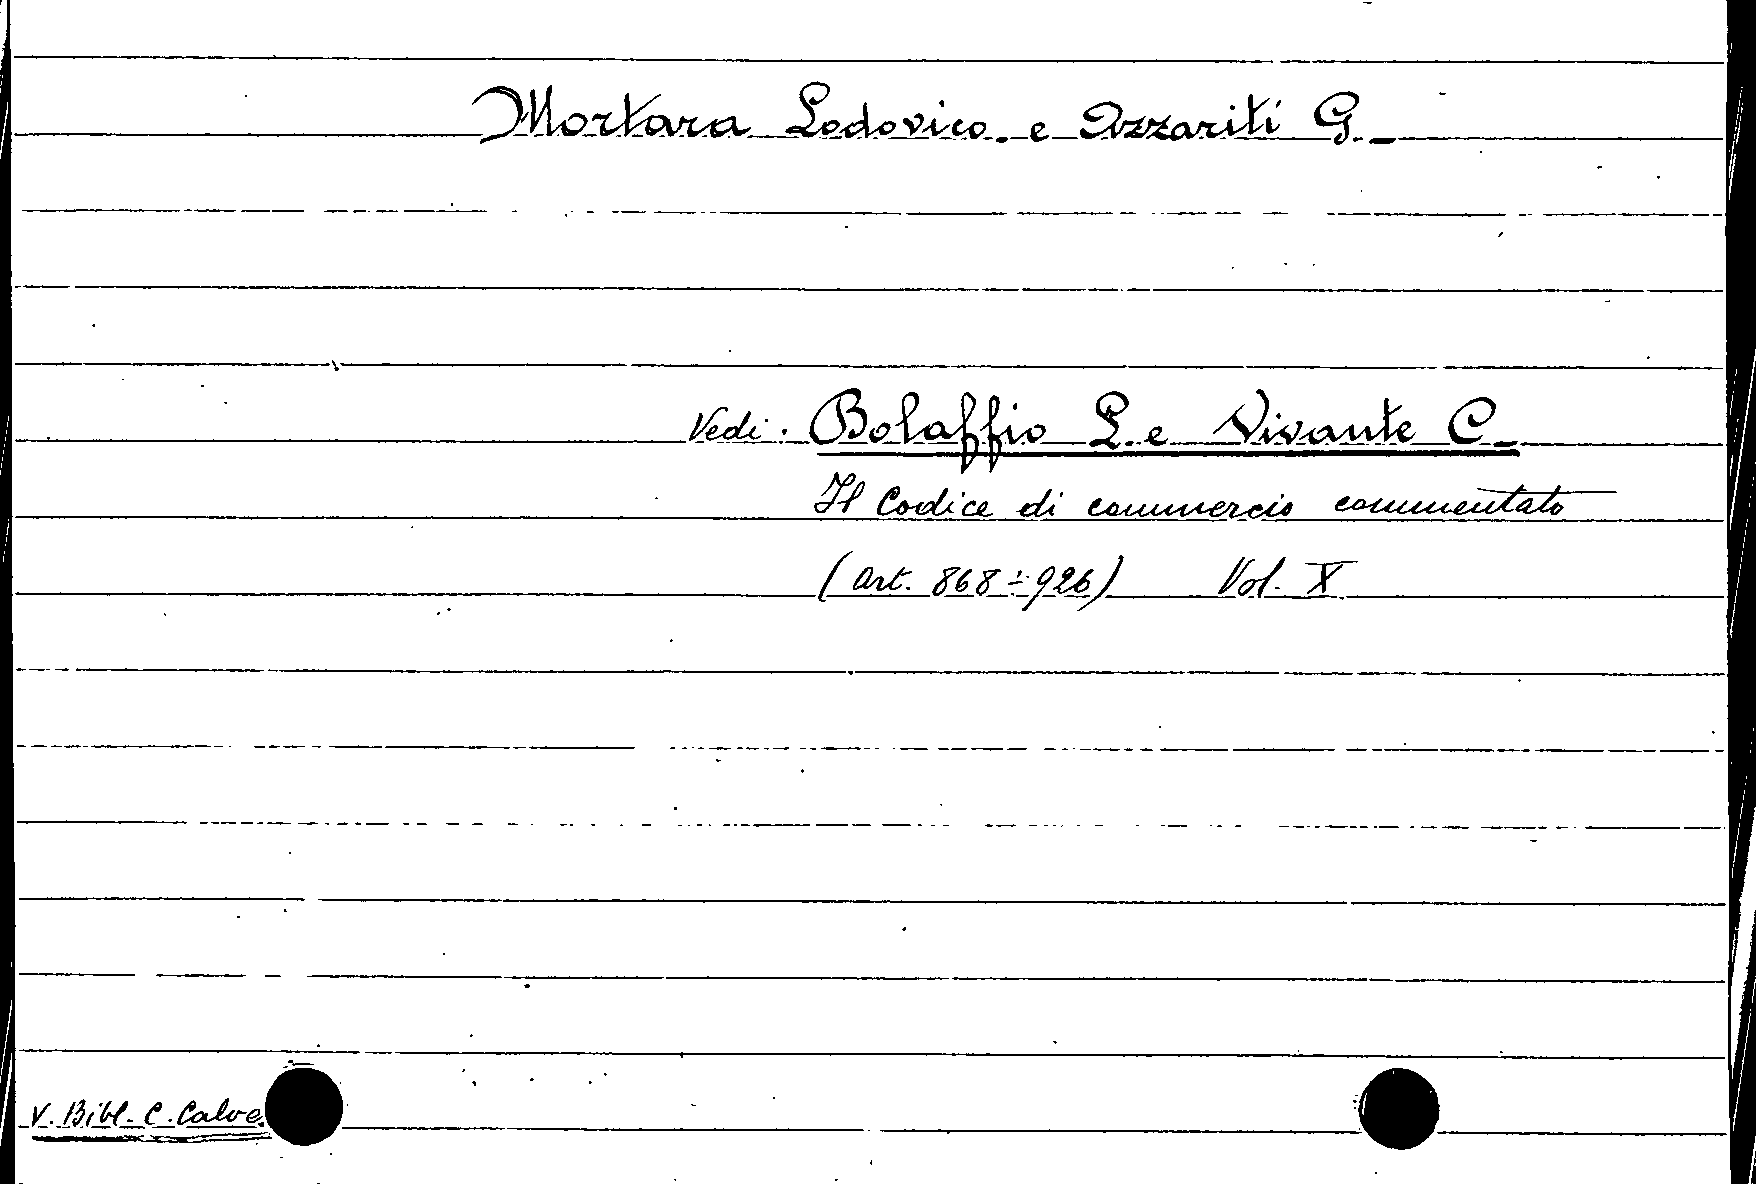 Mortara Lodovico. e Azzariti G. -
Vedi: Bolaffio L. e Vivante C -
Il Codice di commercio commentato
(art. 868÷926) Vol. X
V. Bibl. C. Calve